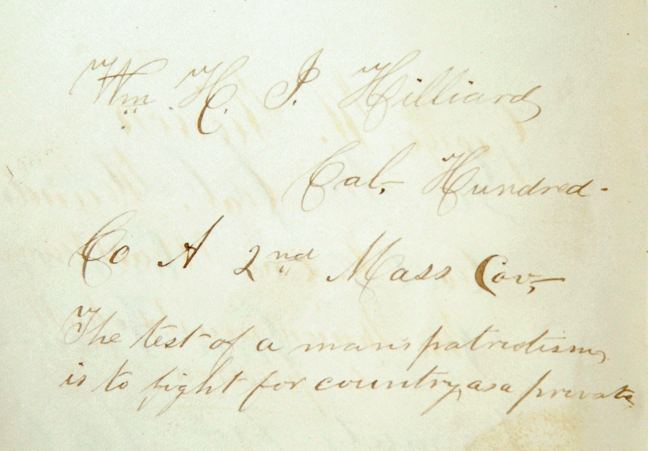 Wm. H. I. Hilliard
Cal. Hundred.
Co A 2nd Mass Cav,
The test of a man's patriotism,
is to fight for country, as a private